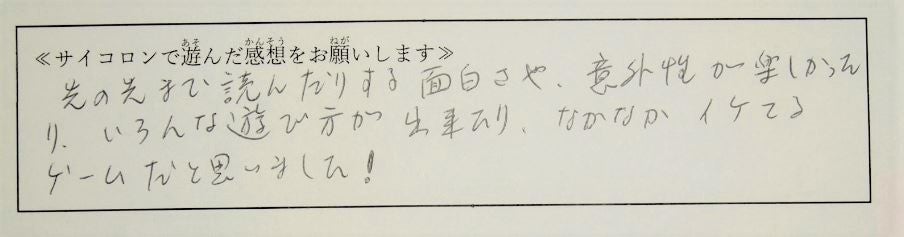 ≪サイコロンで遊んだ感想をお願いします≫
先の先まで読んだりする面白さや、意外性が楽しかった
り、いろんな遊び方が出来たり、なかなかイケてる
ゲームだと思いました!